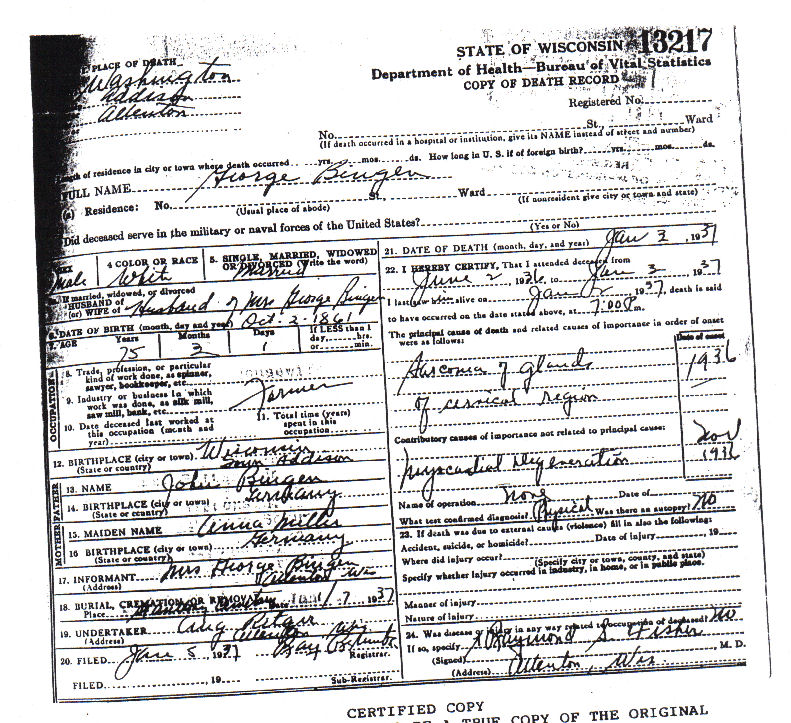 STATE OF WISCONSIN 13217
Department of Health—Bureau of Vital Statistics
COPY OF DEATH RECORD
PLACE OF DEATH
Washington
Addison
Allenton
Registered No.
No. St., Ward
(If death occurred in a hospital or institution, give its NAME instead of street and number)
Length of residence in city or town where death occurred yrs. mos. ds. How long in U. S. if of foreign birth? yrs. mos. ds.
FULL NAME George Bingen
(a) Residence: No. St. Ward
(Usual place of abode) (If nonresident give city or town and state)
Did deceased serve in the military or naval forces of the United States?
(Yes or No)
SEX Male
4 COLOR OR RACE White
5. SINGLE, MARRIED, WIDOWED OR DIVORCED (Write the word) Married
If married, widowed, or divorced
HUSBAND of
(or) WIFE of Husband of Mrs George Bingen
6. DATE OF BIRTH (month, day, and year) Oct-2-1861
7. AGE Years 75 Months 3 Days 1 If LESS than 1 day, hrs. or min.
OCCUPATION
8. Trade, profession, or particular kind of work done, as spinner, sawyer, bookkeeper, etc. Farmer
9. Industry or business in which work was done, as silk mill, saw mill, bank, etc.
10. Date deceased last worked at this occupation (month and year)
11. Total time (years) spent in this occupation
12. BIRTHPLACE (city or town) Wisconsin
(State or country) Town Addison
FATHER
13. NAME John Bingen
14. BIRTHPLACE (city or town) Germany
(State or country)
MOTHER
15. MAIDEN NAME Anna Miller
16 BIRTHPLACE (city or town) Germany
(State or country)
17. INFORMANT Mrs George Bingen
(Address) Allenton Wis
18. BURIAL, CREMATION OR REMOVAL
Place Date 1/7 1937
19. UNDERTAKER Aug
(Address) Allenton Wis
20. FILED Jan 5, 1937 Registrar.
FILED , 19 Sub-Registrar.
21. DATE OF DEATH (month, day, and year) Jan 3, 1937
22. I HEREBY CERTIFY, That I attended deceased from
June 2 1936 to Jan 3 1937
I last saw alive on Jan 2 1937, death is said
to have occurred on the date stated above, at 7:00 P.m.
The principal cause of death and related causes of importance in order of onset
were as follows: Date of onset
Sarcoma of glands 1936
of cervical region
Contributory causes of importance not related to principal cause:
Myocardial Degeneration Nov 1936
Name of operation None Date of
What test confirmed diagnosis? Physical Was there an autopsy? No
23. If death was due to external causes (violence) fill in also the following:
Accident, suicide, or homicide? Date of injury , 19
Where did injury occur?
(Specify city or town, county, and state)
Specify whether injury occurred in industry, in home, or in public place.
Manner of injury
Nature of injury
24. Was disease or injury in any way related to occupation of deceased? No
If so, specify
(Signed) Raymond S. Fisher, M. D.
(Address) Allenton, Wis.
CERTIFIED COPY
A TRUE COPY OF THE ORIGINAL